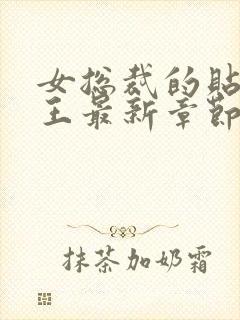 女总裁的贴
王最新章节
抹茶加奶霜